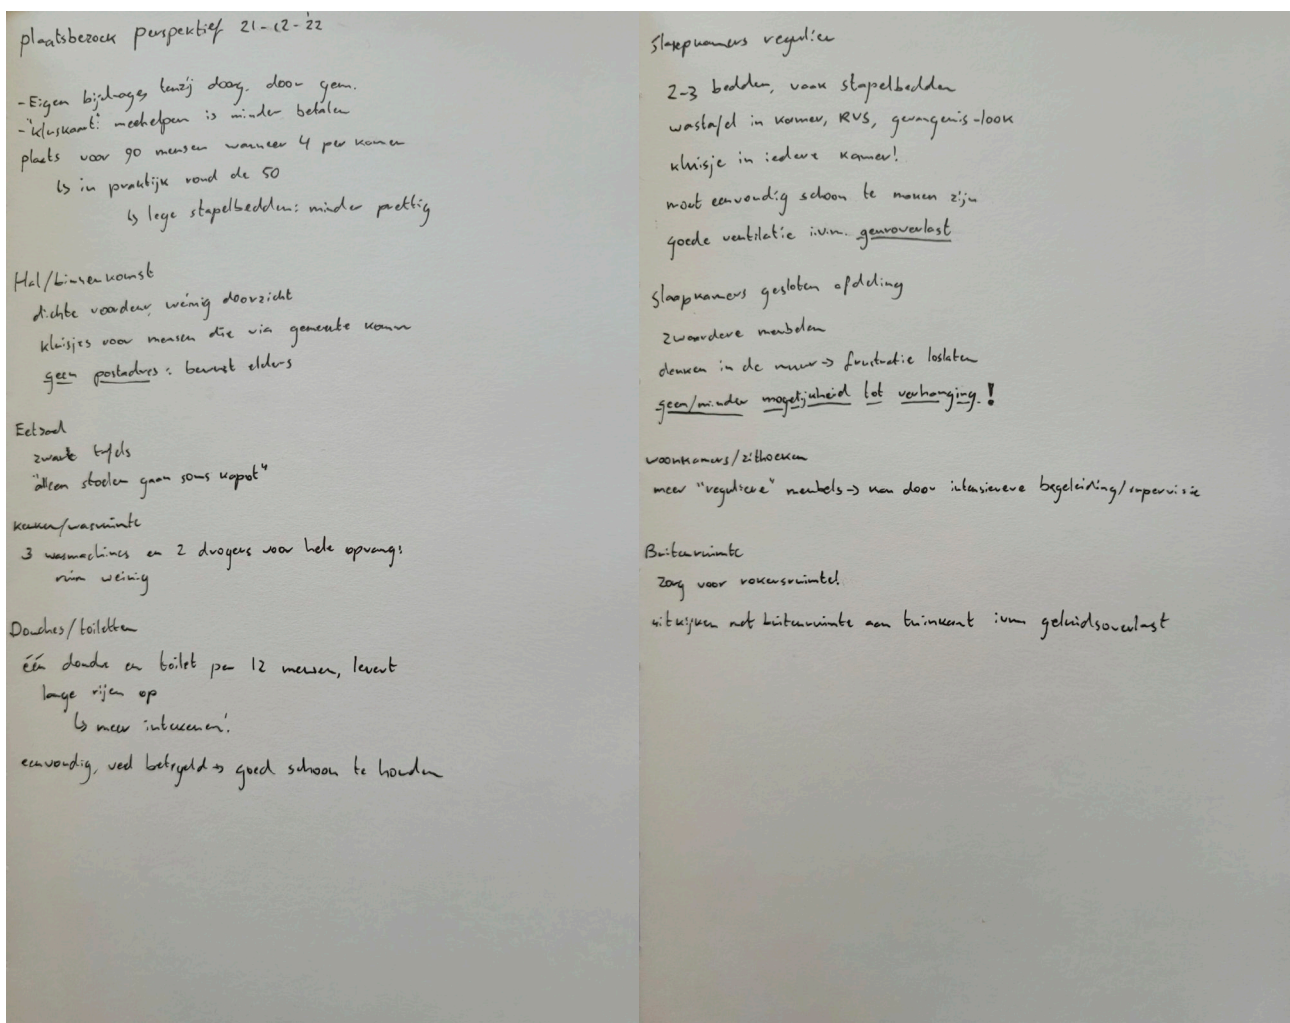 plaatsbezoek perspektief 21-12-'22
- Eigen bijdrages tenzij doorg. door gem.
- "kluskaart": meehelpen is minder betalen
plaats voor 90 mensen wanneer 4 per kamer
↳ in praktijk rond de 50
↳ lege stapelbedden: minder prettig
Hal/binnenkomst
dichte voordeur, weinig doorzicht
kluisjes voor mensen die via gemeente komen
geen postadres: bewust elders
Eetzaal
zware tafels
"alleen stoelen gaan soms kapot"
keuken/wasruimte
3 wasmachines en 2 drogers voor hele opvang:
ruim weinig
Douches/toiletten
één douche en toilet per 12 mensen, levert
lange rijen op
↳ meer intekenen!
eenvoudig, veel betegeld → goed schoon te houden
Slaapkamers regulier
2-3 bedden, vaak stapelbedden
wastafel in kamer, RVS, gevangenis-look
kluisje in iedere kamer!
moet eenvoudig schoon te maken zijn
goede ventilatie i.v.m. geuroverlast
Slaapkamers gesloten afdeling
zwaardere meubelen
deuken in de muur → frustratie loslaten
geen/minder mogelijkheid tot verhanging!
woonkamers/zithoeken
meer "reguliere" meubels → kan door intensievere begeleiding/supervisie
Buitenruimte
zorg voor rokersruimte!
uitkijken met buitenruimte aan tuinkant ivm geluidsoverlast